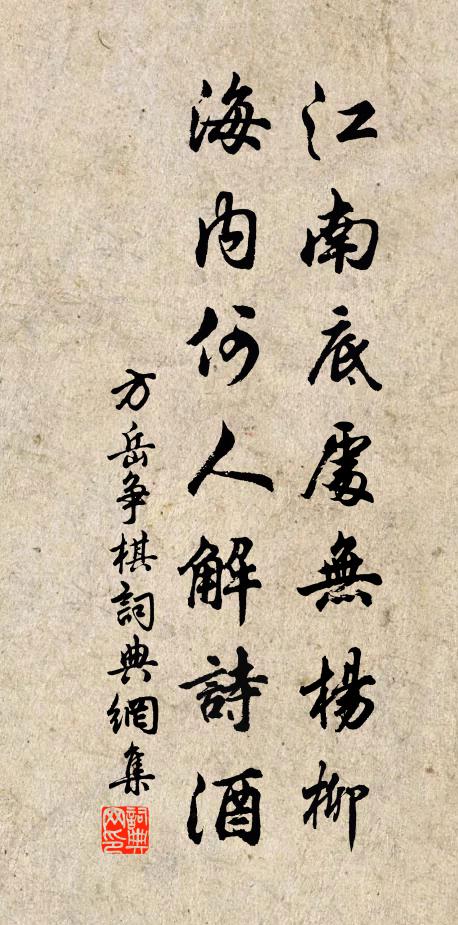 江南底處無楊柳
海内何人解詩酒
方岳争棋詞典網集
詞典网印